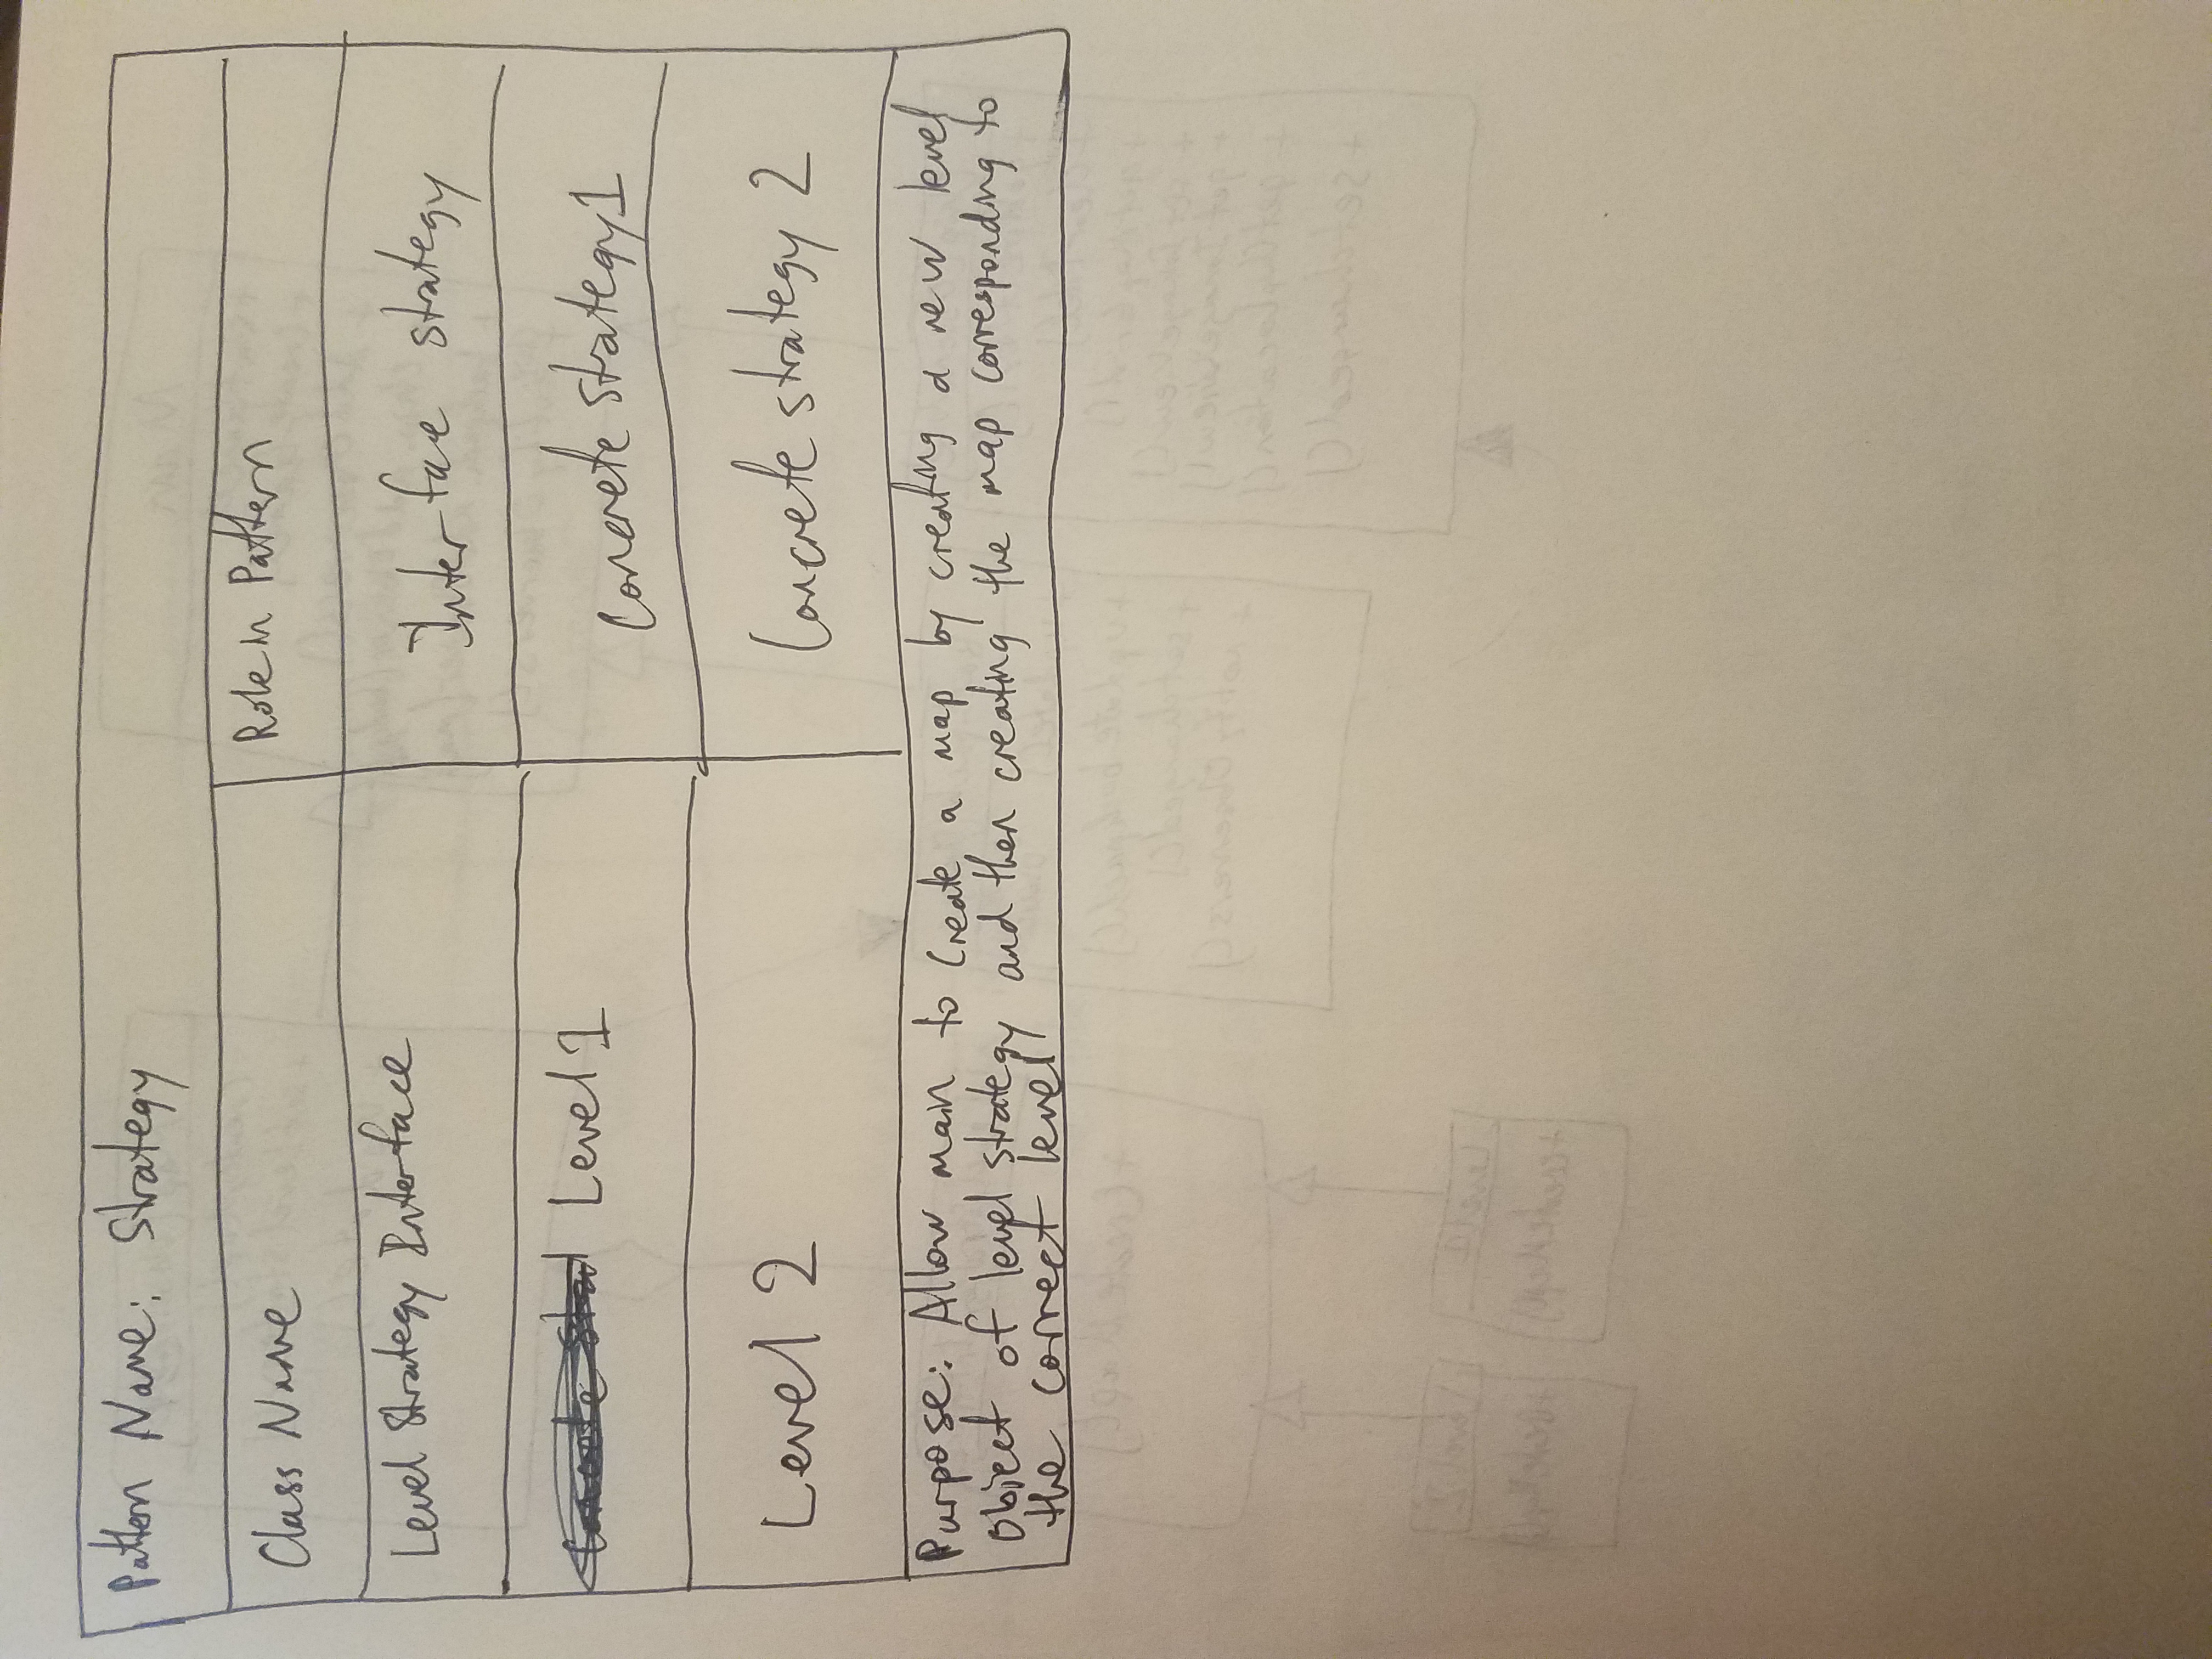 Pattern Name: Strategy
Class Name
Role in Pattern
Level Strategy Interface
Interface strategy
Level 1
Concrete strategy 1
Level 2
Concrete strategy 2
Purpose: Allow main to create a map by creating a new level
object of level strategy and then creating the map corresponding to
the correct level